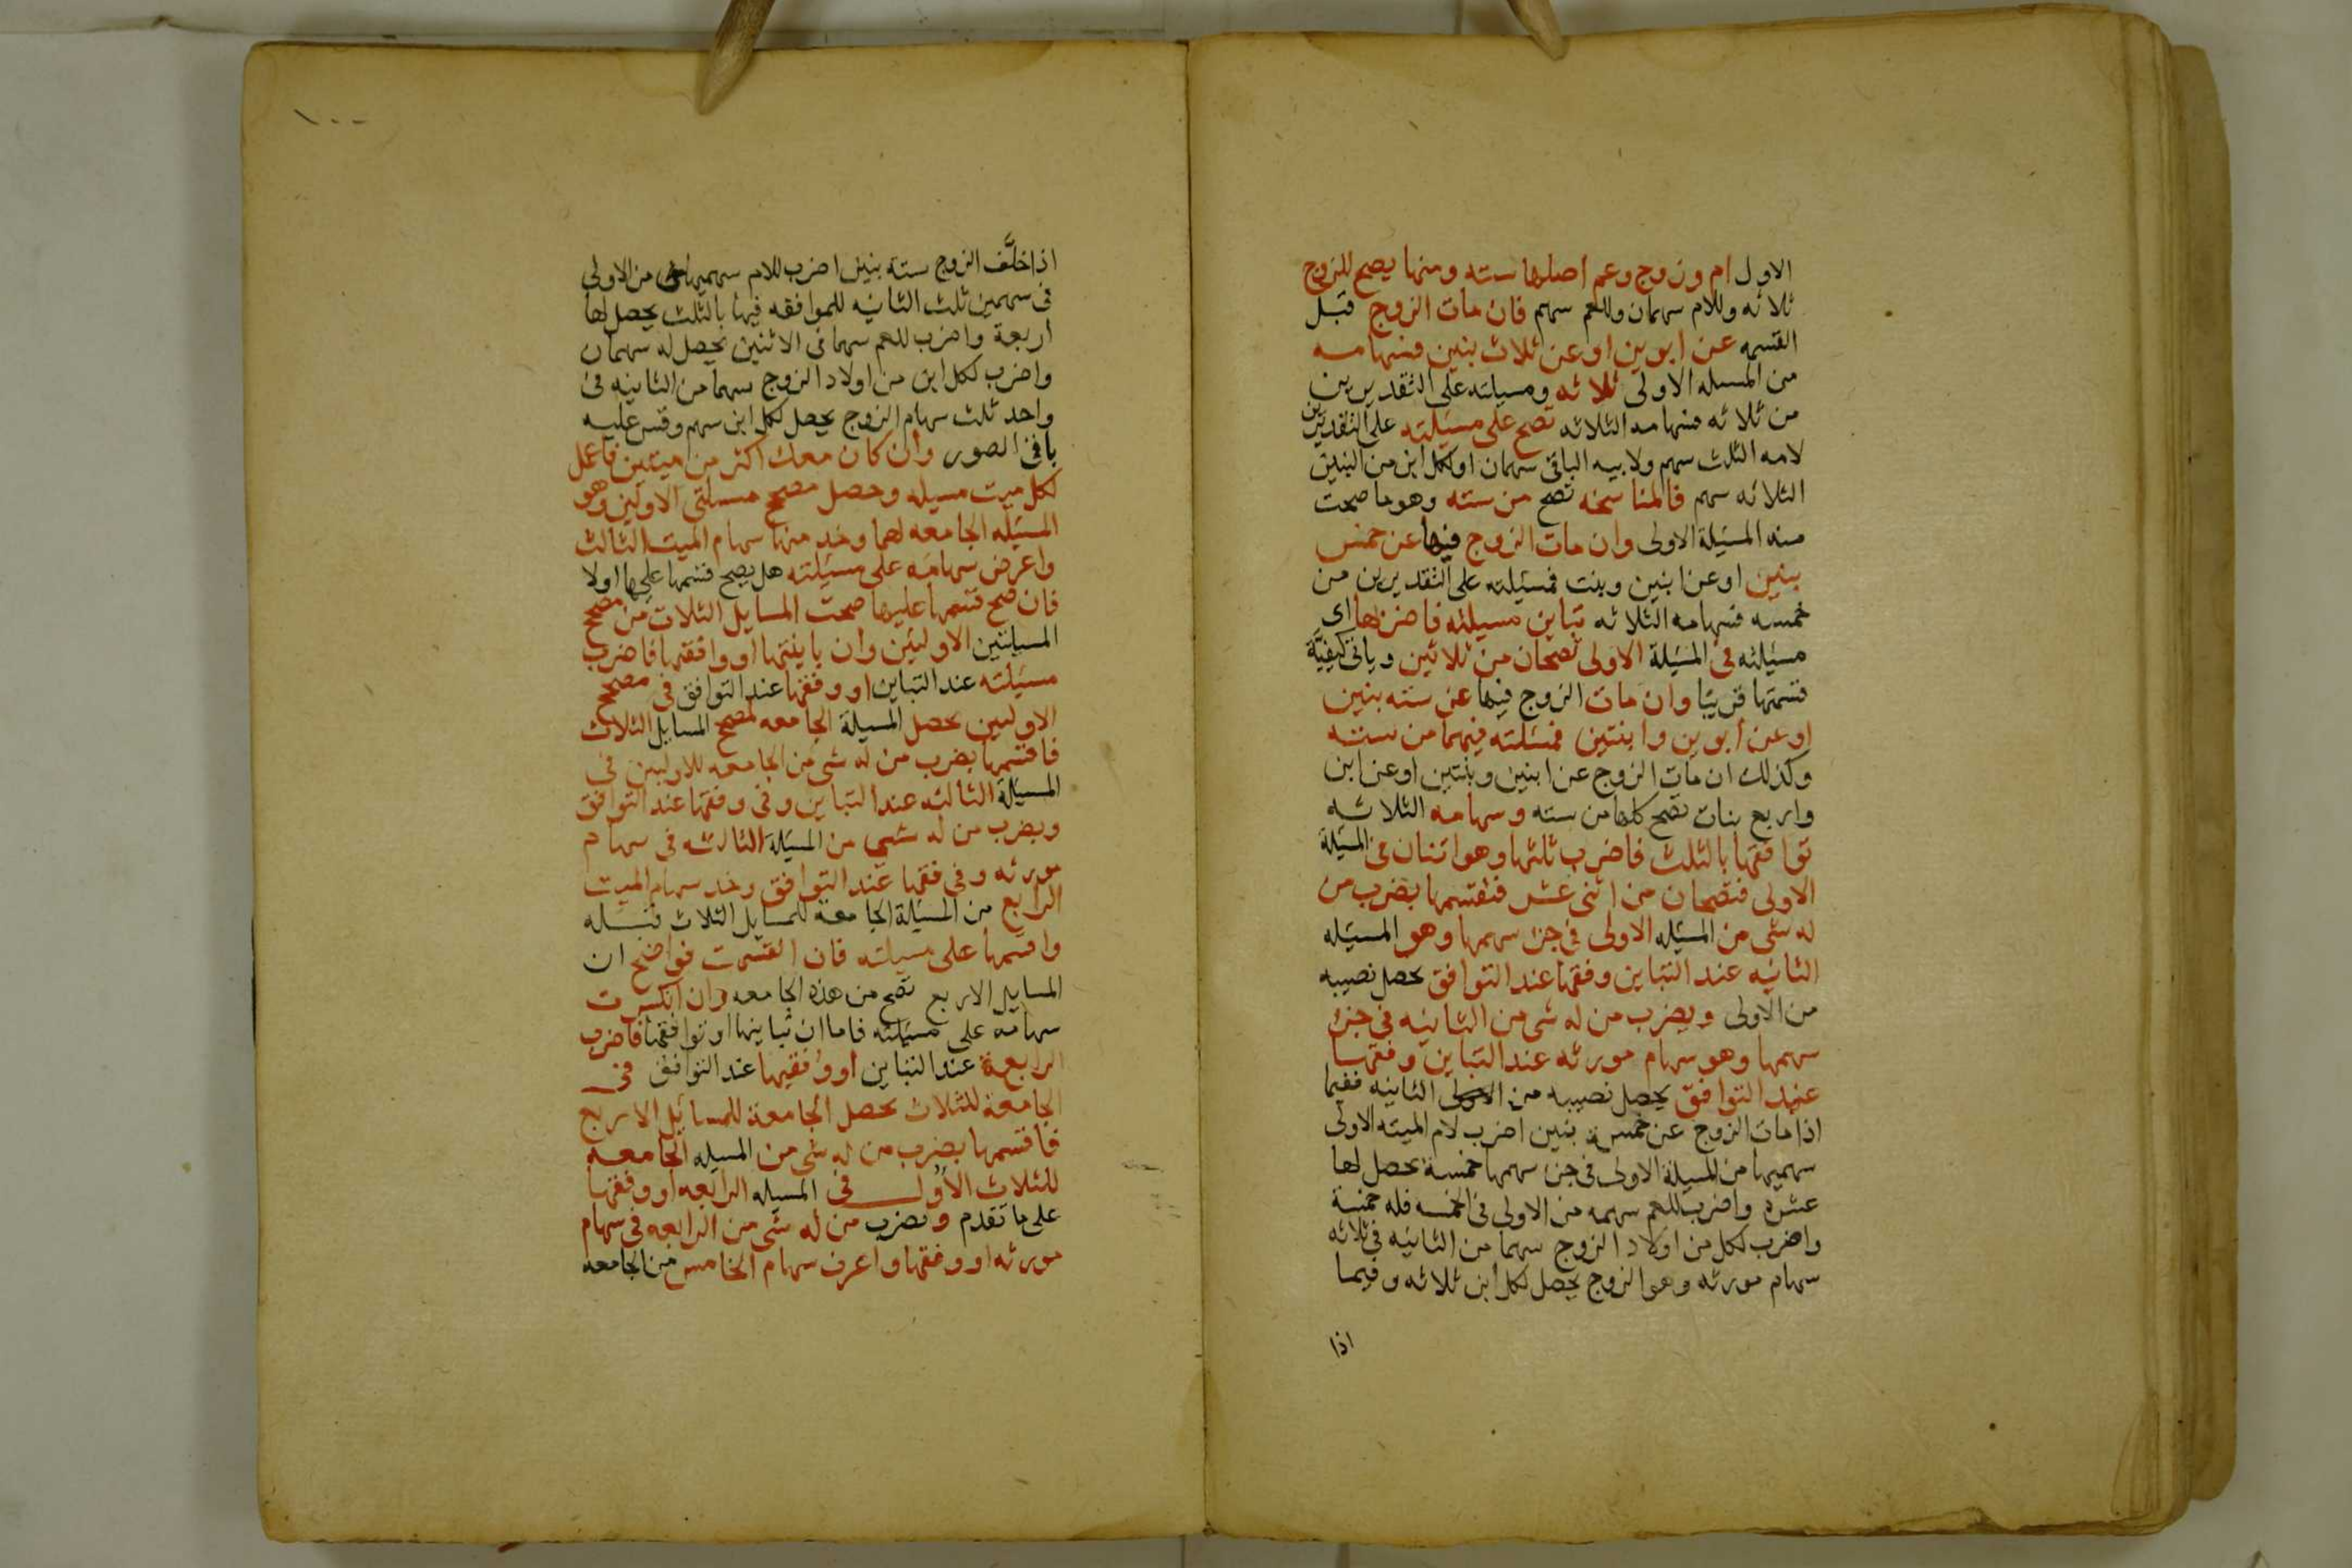 الاول ام وزوج وعم اصلها سته ومنها يصح للزوج
ثلاثه وللام سهمان وللعم سهم فان مات الزوج قبل
القسمه عن ابوين او عن ثلاث بنين فسهامه
من المسله الاولى ثلاثه ومسيلته على التقديرين
من ثلاثه فسهامه الثلاثه تصح على مسيلته على التقديرين
لامه الثلث سهم ولابيه الباقى سهمان او لكل ابن من البنين
الثلاثه سهم فالمناسخه تصح من سته وهو ما صحت
منه المسيلة الاولى وان مات الزوج فيها عن خمس
بنين او عن ابنين وبنت فمسيلته على التقديرين من
خمسه فسهامه الثلاثه تباين مسيلته فاضربها اى
مسيلته فى المسيلة الاولى تصحان من ثلاثين وياتى كيفيَّة
قسمتها قريبًا وان مات الزوج فيها عن سته بنين
او عن ابوين وابنتين فمسلته فيهما من سته
وكذلك ان مات الزوج عن ابنين وبنتين او عن ابن
واربع بنات تصح كلها من سته وسهامه الثلاثه
توافقها بالثلث فاضرب ثلثها وهو اثنان فى المسيلة
الاولى فتصحان من اثنى عشر فتقسمها بضرب من
له شى من المسيله الاولى فى جزء سهمها وهو المسيله
الثانيه عند التباين وفقها عند التوافق يحصل نصيبه
من الاولى ويضرب من له شى من الثانيه فى جزء
سهمها وهو سهام مورثه عند التباين وفقها
عند التوافق يحصل نصيبه من الثانيه ففيما
اذا مات الزوج عن خمسة بنين اضرب لام الميته الاولى
سهميها من المسيلة الاولى فى جزء سهمها خمسة يحصل لها
عشره واضرب للعم سهمه من الاولى فى الخمسه فله خمسة
واضرب لكل من اولاد الزوج سهما من الثانيه فى ثلاثه
سهام مورثه وهو الزوج يحصل لكل ابن ثلاثه وفيما
اذا
١٠٠
اذا خلَّف الزوج ستة بنين اضرب للام سهميها من الاولى
فى سهمين ثلث الثانيه للموافقه فيها بالثلث يحصل لها
اربعة واضرب للعم سهما فى الاثنين يحصل له سهمان
واضرب لكل ابن من اولاد الزوج سهما من الثانيه فى
واحد ثلث سهام الزوج يحصل لكل ابن سهم وقس عليه
باقى الصور وان كان معك اكثر من ميتين فاعمل
لكل ميت مسيله وحصل مصحح مسلتى الاولين وهو
المسيله الجامعه لهما وخذ منها سهام الميت الثالث
واعرض سهامه على مسيلته هل يصح قسمها عليها اولا
فان صح قسمها عليها صحت المسايل الثلاث من مصحح
المسيلتين الاوليين وان باينتها او وافقتها فاضرب
مسيلته عند التباين او وفقها عند التوافق فى مصحح
الاوليين يحصل المسيلة الجامعه لمصحح المسايل الثلاث
فاقسمها بضرب من له شى من الجامعه للاوليين فى
المسيلة الثالثه عند التباين وفى وفقها عند التوافق
ويضرب من له شى من المسيلة الثالثه فى سهام
مورثه وفى وفقها عند التوافق وخذ سهام الميت
الرابع من المسيلة الجامعة للمسايل الثلاث
واقسمها على مسيلته فان انقسمت فواضح ان
المسايل الاربع تصح من هذه الجامعه وان انكسرت
سهامه على مسيلته فاما ان تباينها او توافقها فاضرب
الرابعة عند التباين او وفقها عند التوافق فى
الجامعة للثلاث يحصل الجامعة للمسايل الاربع
فاقسمها بضرب من له شى من المسيله الجامعه
للثلاث الاُول فى المسيله الرابعه او وفقها
على ما تقدم وتضرب من له شى من الرابعه فى سهام
مورثه او وفقها واعرف سهام الخامس من الجامعه